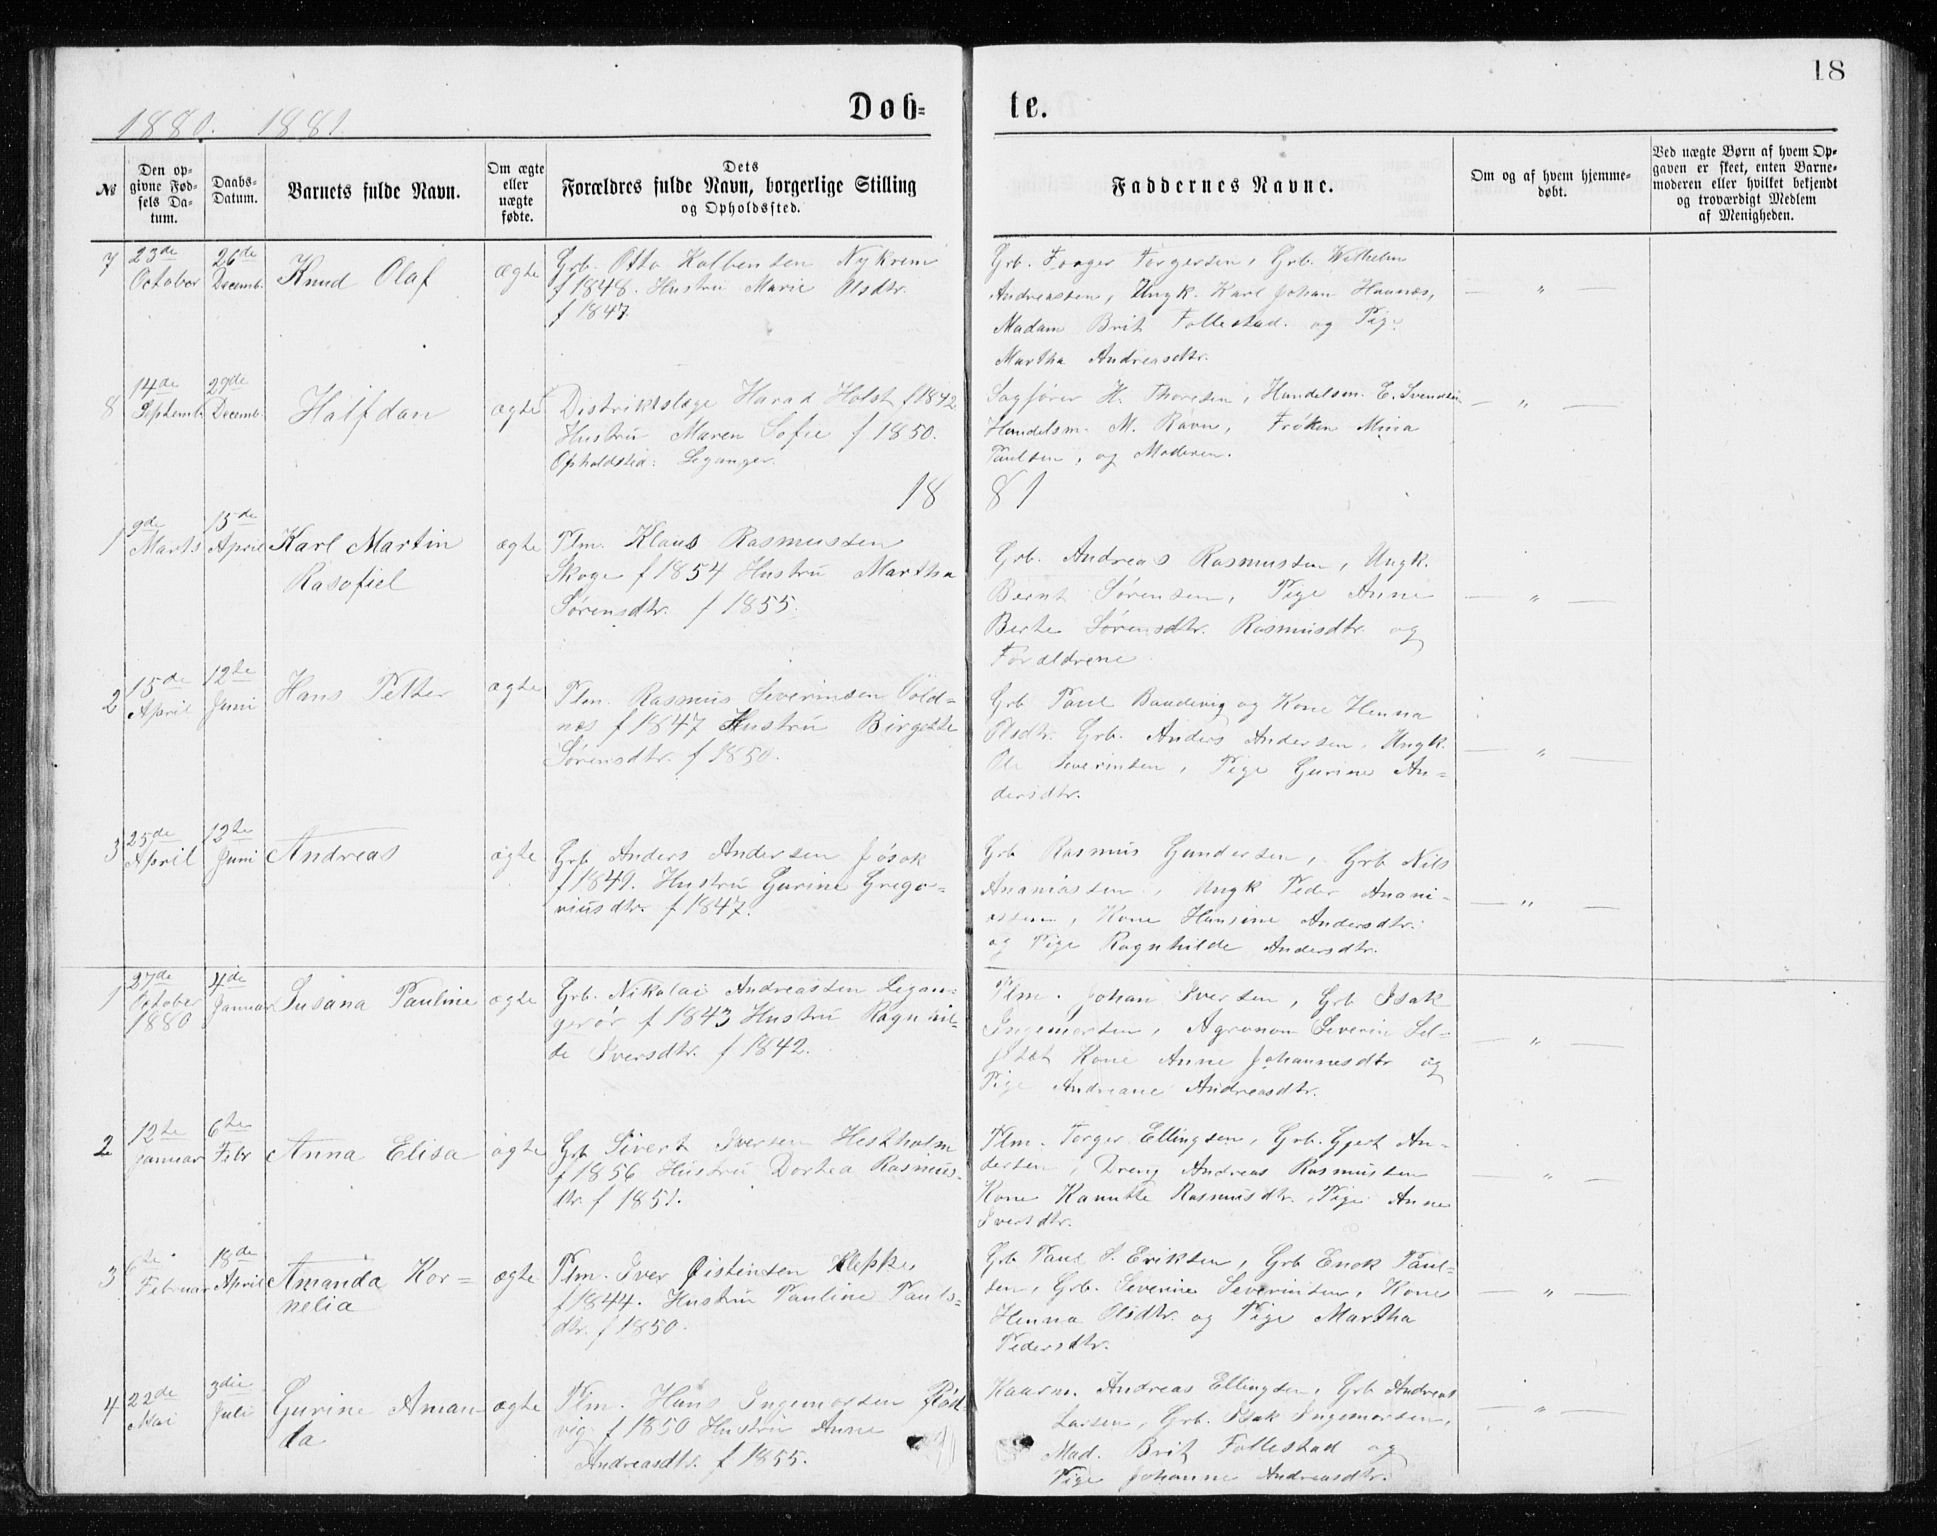 18
1880. 1881.
Døb-
te.
№
Den op-
givne Fød-
sels Da-
tum.
Daabs-
Datum.
Barnets fulde Navn.
Om ægte
eller
uægte
fødte.
Dets
Forældres fulde Navn, borgerlige Stilling
og Opholdssted.
Faddernes Navne.
Om og af hvem hjemme-
døbt.
Ved uægte Børn af hvem Op-
gaven er skeet, enten Barne-
moderen eller hvilket bekjendt
og troværdigt Medlem
af Menigheden.
7
23de
October
26de
Decemb.
Knud Olaf
ægte
Grb. Otto Kolbensen Nykrem
f 1848. Hustru Marie Olsdtr.
f 1847.
Grb. Torger Torgersen, Grb. Wilhelm
Andreassen, Ungk. Karl Johan Haanæs,
Madam Brit Follestad. og Pige
Martha Andreasdtr.
— " —
8
14de
Septemb.
29de
Decemb.
Halfdan
ægte
Distriktslæge Harad Holst f 1842
Hustru Maren Sofie f 1850.
Opholdssted: Leganger.
Sagfører H. Thoresen, Handelsm. E. Svendsen
Handelsm. M. Ravn, Frøken Mina
Paulsen, og Moderen.
— " —
18 81
1
9de
Marts
15de
April
Karl Martin
Rasofiel
ægte
Plm. Klaus Rasmussen
Skoge f 1854 Hustru Martha
Sørensdtr. f 1855.
Grb. Andreas Rasmussen, Ungk.
Bernt Sørensen, Pige Anne
Berte Sørensdtr. Rasmusdtr. og
Forældrene
— " —
2
15de
April
12te
Juni
Hans Petter
ægte
Plm. Rasmus Severinsen Vold-
næs f 1847 Hustru Birgitte
Sørensdtr. f 1850.
Grb Paul Baadevig og Kone Henna
Olsdtr. Grb. Anders Andersen, Ungk.
Ole Severinsen, Pige Gurine An-
dersdtr.
— " —
3
25de
April
12te
Juni
Andreas
ægte
Grb Anders Andersen Jøsok
f 1849. Hustru Gurine Grego-
riusdtr. f 1847.
Grb Rasmus Gundersen, Grb Nils
Ananiassen, Ungk Peder Anani-
assen, Kone Hansine Andersdtr.
og Pige Ragnhilde Andersdtr.
— " —
1
27de
October
1880
4de
Januar
Susana Pauline
ægte
Grb. Nikolai Andreassen Legan-
gerør f 1843 Hustru Ragnhil-
de Iversdtr. f 1842.
Plm. Johan Iversen, Grb Isak
Ingemorsen, Agronom Severin Sel-
Kone Anne Johannesdtr og
Pige Andreane Andreasdtr.
— " —
2
12te
Januar
6te
Febr
Anna Elisa
ægte
Grb Sivert Iversen Hestholm
f 1856 Hustru Dortea Rasmus-
dtr. f 1851.
Plm. Torger Ellingsen, Grb. Gjert An-
dersen, Dreng Andreas Rasmussen
Kone Kanutte Rasmusdtr., Pige Anne
Iversdtr.
— " —
3
6te
Februar
18de
April
Amanda Kor-
nelia
ægte
Plm. Iver Øistensen Kleppe,
f 1844. Hustru Pauline Pauls-
dtr. f 1850.
Grb Paul S. Eriksen, Grb Enok Paul-
sen, Grb. Severine Severinsen, Kone
Henna Olsdtr. og Pige Martha
Pedersdtr.
— " —
4
22de
Mai
3die
Juli
Gurine Aman
da
ægte
Plm. Hans Ingemorsen Rød-
vig f 1850 Hustru Anne
Andreasdtr. f 1855.
Kaarm. Andreas Ellingsen, Grb Andreas
Larsen, Grb. Isak Ingemorsen,
Mad. Brit Follestad og
Pige Johanne Andreasdtr.
— " —